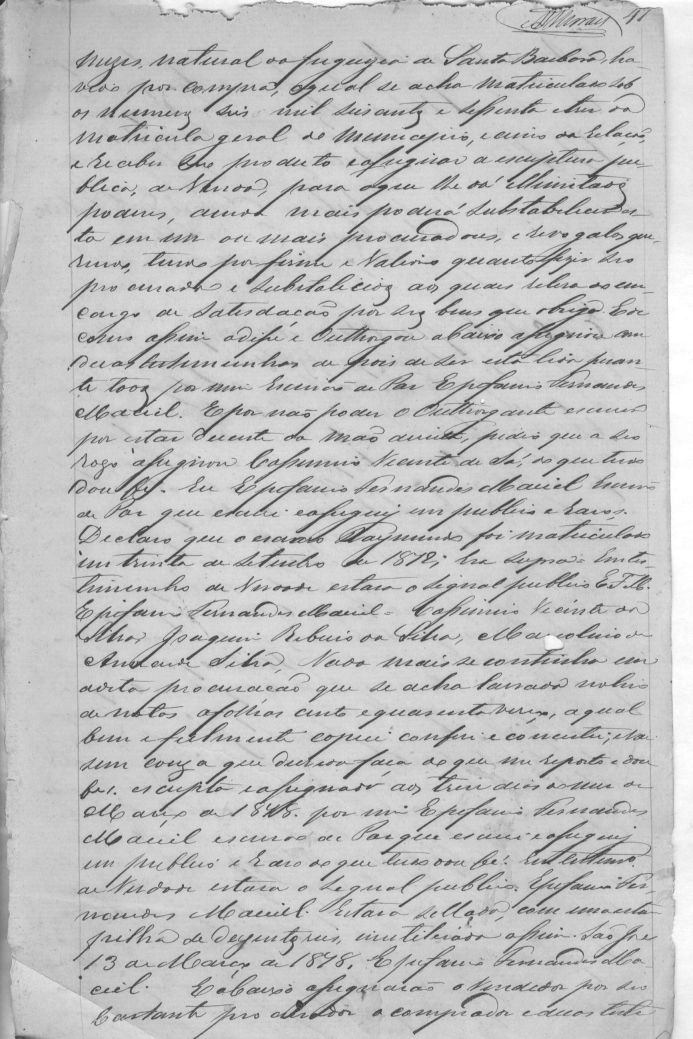 41
mezes, natural da freguezia de Santa Barbara, ha-
vido por compra, o qual se acha matriculado sob
os numeros seis mil seis centos e sessenta e tres da
matricula geral do Municipio, e da relação,
e receber seu producto e assignar a escriptura pu-
blica, de Venda, para o que lhe dá illimitados
poderes, ainda mais poderá substabelecer es-
ta em um ou mais procuradores, e revogalos que-
rendo, tendo por firme e Valioso quanto fizer seo
procurador e substabelecidos aos quais releva do en-
cargo de satisdação por seus bens que obriga. E de
como assim o disse e Outhorgou abaixo assignou com
duas testemunhas depois de ser esta lida peran-
te todos por mim Escrivão de Paz Epifanio Fernandes
Maciel. E por não poder o Outhorgante escrever
por estar doente da mão direita, pedio que a seo
rogo assignou Cassimiro Vicente de Sá, do que tudo
dou fé. Eu Epifanio Fernandes Maciel Escrivão
de Paz que escrevi e assignei em publico e razo.
Declaro que o escravo Raymundo foi matriculado
em trinta de Setembro de 1872; era supra = Em tes-
timunho de Verdade estava o signal publico E. F. M.
Epifanio Fernandes Maciel = Cassimiro Vicente da
Joaquim Ribeiro da Silva, Marcolino de
Andrade Silva, Nada mais se continha em
a dita procuração que se acha lavrada no livro
de notas a folhas cento e quarenta verso, a qual
bem e fielmente copiei conferi e concertei, e vai
sem couza que duvida faça do que me reporto e dou
fé. escripto e assignado aos tres dias do mez de
Março de 1878. por mim Epifanio Fernandes
Maciel escrivão de Paz que escrevi e assignei
em publico e razo do que tudo dou fé. Em testimo.
de Verdade estava o signal publico. Epifanio Fer-
nandes Maciel. Estava sellada, com uma estam-
pilha de duzentos reis, inutilizada assim. São José
13 de Março de 1878, Epifanio Fernandes Ma-
ciel. E abaixo assignarão o Vendedor por seo
bastante procurador o comprador e duas teste